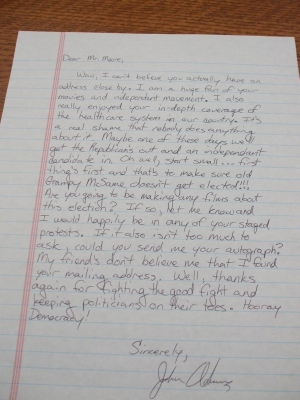 Dear Mr. Moore,
Wow, I can't believe you actually have an
address close by. I am a huge fan of your
movies and independent movement. I also
really enjoyed your in-depth coverage of
the healthcare system in our country. It's
a real shame that nobody does anything
about it. Maybe one of these days we'll
get the Republican's out and an independent
candidate in. Oh well, start small... first
thing's first and that's to make sure old
Grampy McSame doesn't get elected!!!
Are you going to be making any films about
this election? If so, let me know and
I would happily be in any of your staged
protests. If it also isn't too much to
ask, could you send me your autograph?
My friend's don't believe me that I found
your mailing address. Well, thanks
again for fighting the good fight and
keeping politicians on their toes. Hooray
Democracy!
Sincerely,
John